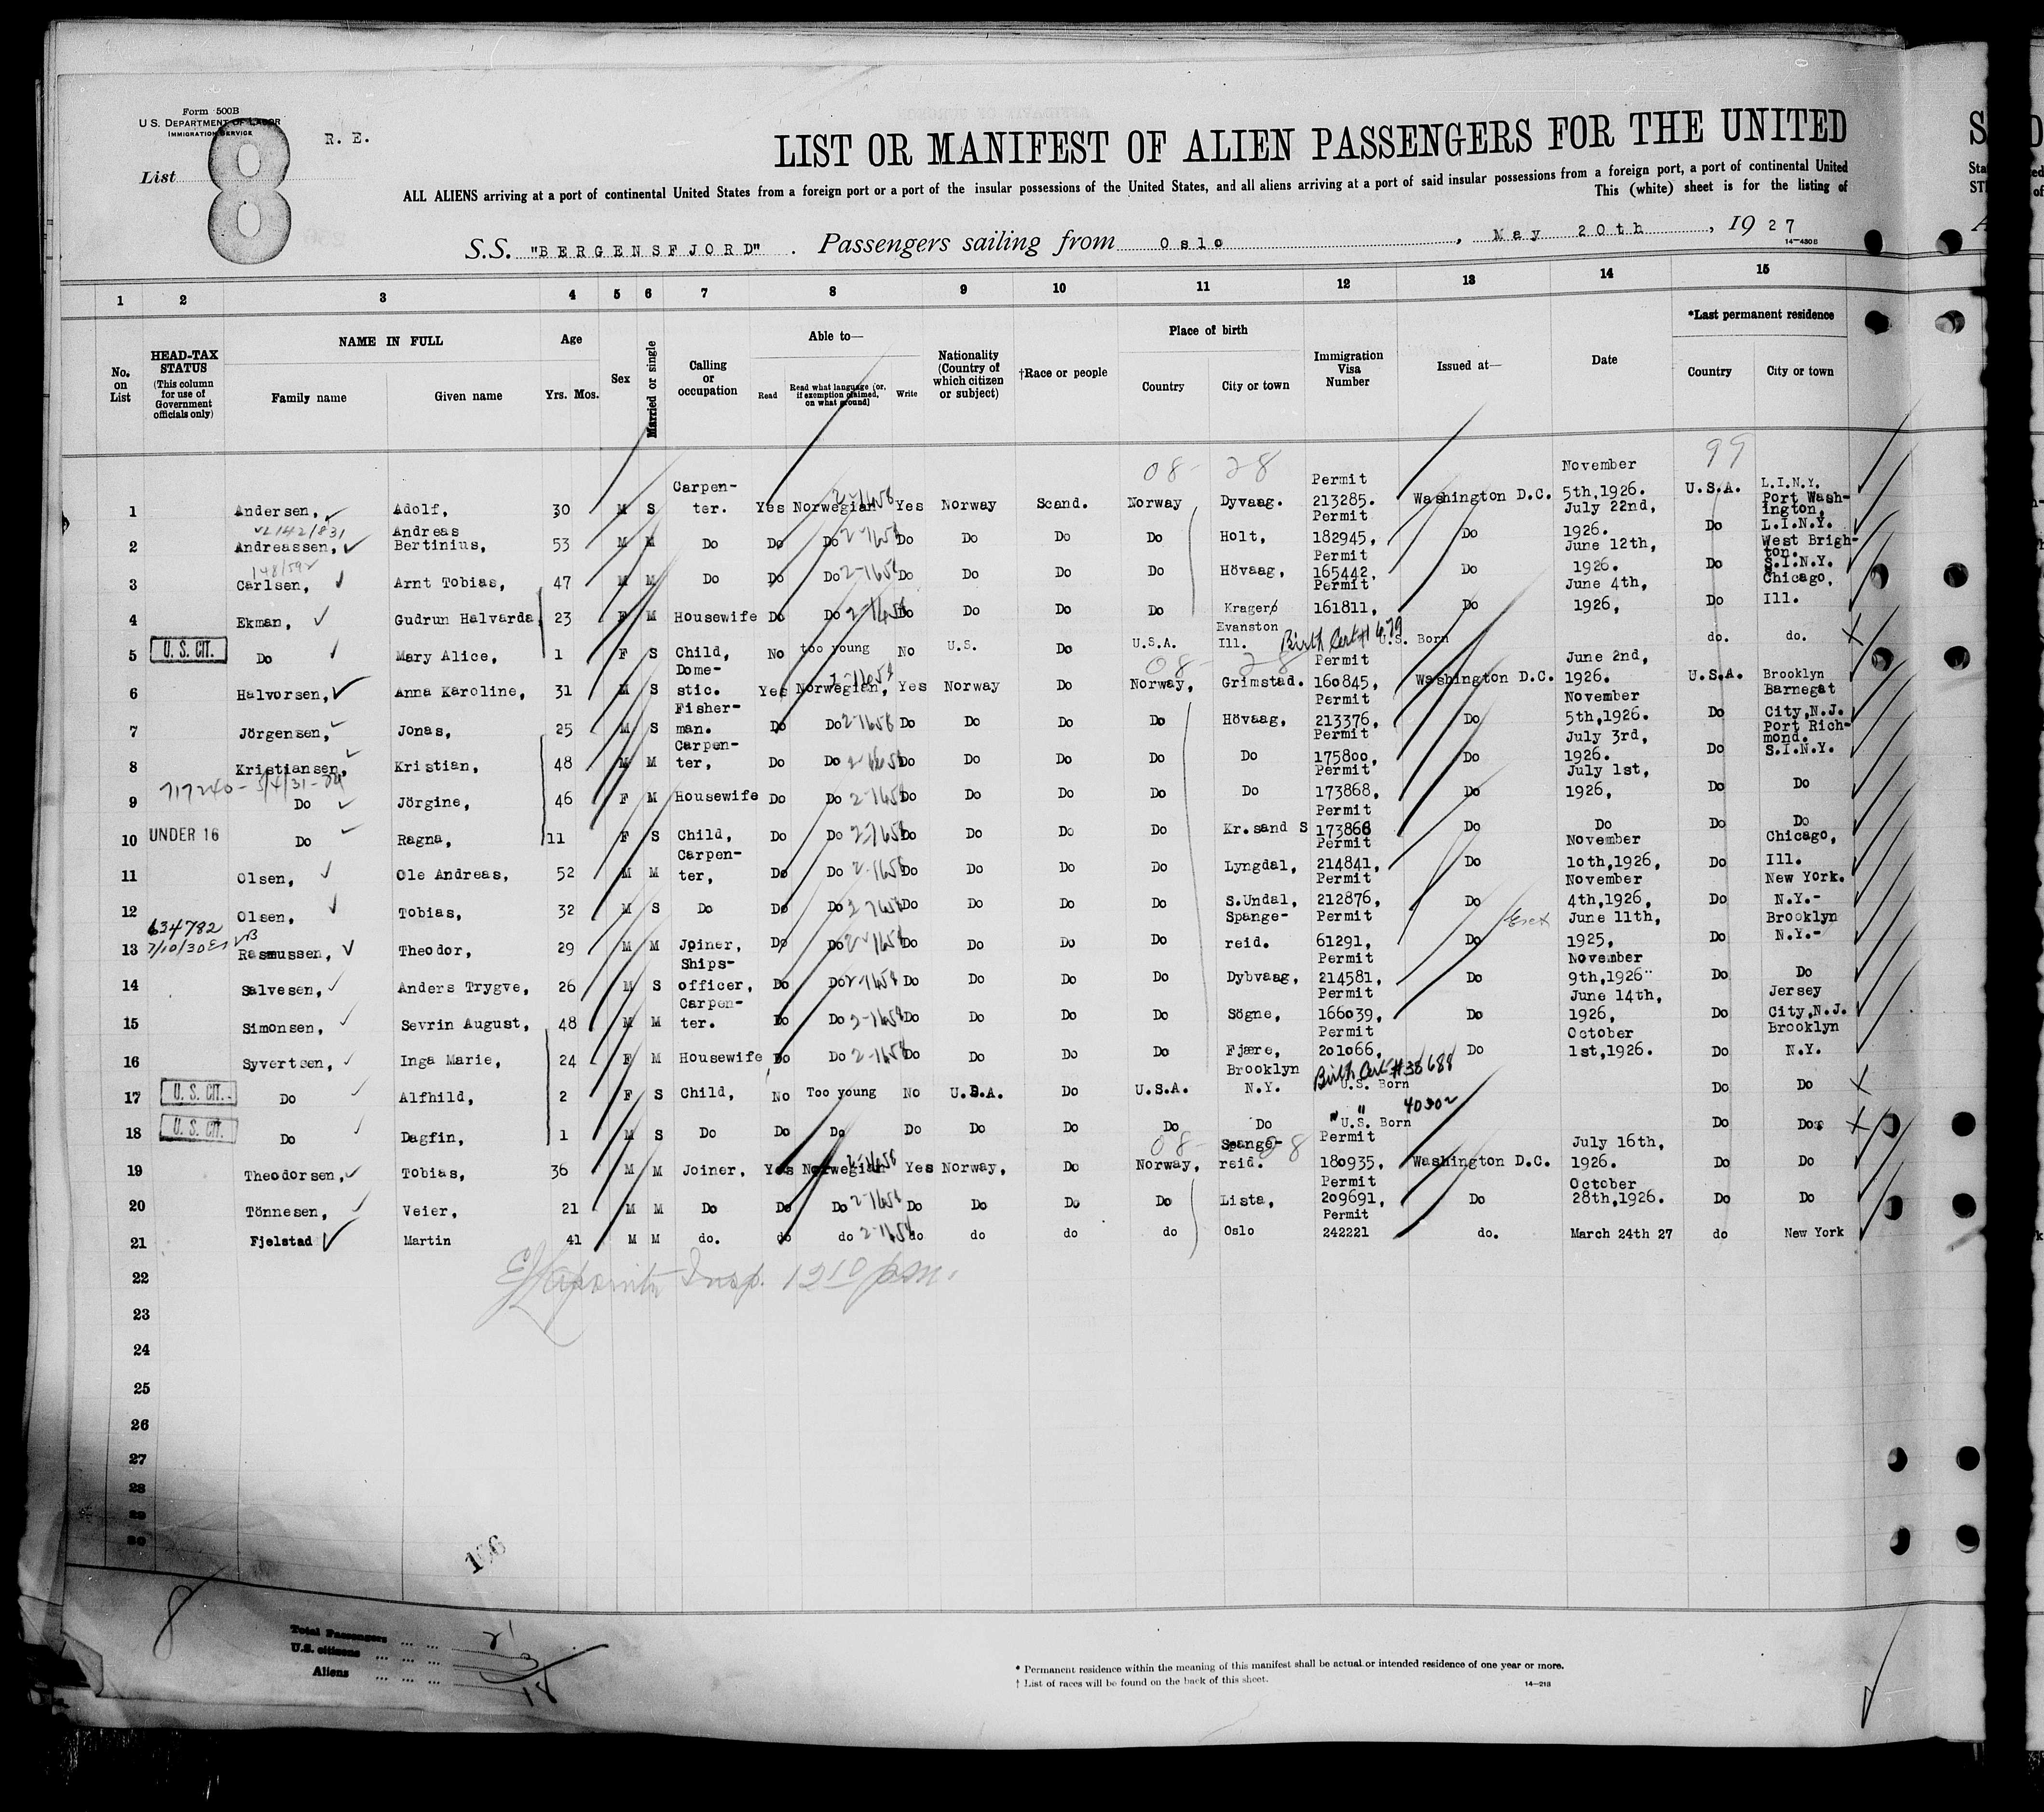 Form 500B
U.S. DEPARTMENT OF LABOR
IMMIGRATION SERVICE
List 8
R. E.
LIST OR MANIFEST OF ALIEN PASSENGERS FOR THE UNITED
ALL ALIENS arriving at a port of continental United States from a foreign port or a port of the insular possessions of the United States, and all aliens arriving at a port of said insular possessions from a foreign port, a port of continental United
This (white) sheet is for the listing of
S.S. "BERGENSFJORD" . Passengers sailing from Oslo , May 20th , 1927
14—430B
1 2 3 4 5 6 7 8 9 10 11 12 13 14 15
No. on List
HEAD-TAX STATUS (This column for use of Government officials only)
NAME IN FULL Family name Given name
Age Yrs. Mos.
Sex
Married or single
Calling or occupation
Able to— Read Read what language (or, if exemption claimed, on what ground) Write
Nationality (Country of which citizen or subject)
†Race or people
Place of birth Country City or town
Immigration Visa Number
Issued at—
Date
*Last permanent residence Country City or town
08- 28 99
1 Andersen, Adolf, 30 M S Carpen- ter. Yes Norwegian 2-1658 Yes Norway Scand. Norway Dyvaag. Permit 213285. Washington D.C. November 5th,1926. U.S.A. L.I.N.Y. Port Wash- ington,
2 Andreassen, Andreas Bertinius, 53 M M Do Do Do 2-1658 Do Do Do Do Holt, Permit 182945, Do July 22nd, 1926. Do L.I.N.Y.
148/592
3 Carlsen, Arnt Tobias, 47 M M Do Do Do 2-1658 Do Do Do Do Hövaag, Permit 165442, Do June 12th, 1926. Do West Brigh- ton. S.I.N.Y.
4 Ekman, Gudrun Halvarda 23 F M Housewife Do Do 2-1658 Do Do Do Do Kragerø Permit 161811, Do June 4th, 1926, Do Chicago, Ill.
5 U. S. CIT. Do Mary Alice, 1 F S Child, No too young No U.S. Do U.S.A. Evanston Ill. Birth Cert # 1679 U.S. Born do. do. X
08- 28
6 Halvorsen, Anna Karoline, 31 M S Dome- stic. Yes Norwegian, 2-1658 Yes Norway Do Norway, Grimstad. Permit 160845, Washington D.C. June 2nd, 1926. U.S.A. Brooklyn
7 Jörgensen, Jonas, 25 M S Fisher- man. Do Do 2-1658 Do Do Do Do Hövaag, Permit 213376, Do November 5th,1926. Do Barnegat City,N.J.
8 Kristiansen, Kristian, 48 M M Carpen- ter, Do Do 2-1658 Do Do Do Do Do Permit 175800, Do July 3rd, 1926. Do Port Rich- mond. S.I.N.Y.
9 Do Jörgine, 46 F M Housewife Do Do 2-1658 Do Do Do Do Do Permit 173868, Do July 1st, 1926, Do Do
10 UNDER 16 Do Ragna, 11 F S Child, Do Do 2-1658 Do Do Do Do Kr.sand S Permit 173868 Do Do Do Do
11 Olsen, Ole Andreas, 52 M M Carpen- ter, Do Do 2-1658 Do Do Do Do Lyngdal, Permit 214841, Do November 10th,1926, Do Chicago, Ill.
12 Olsen, Tobias, 32 M S Do Do Do 2-1658 Do Do Do Do S.Undal, Permit 212876, Do November 4th,1926, Do New York. N.Y.-
634782
13 7/10/30 Rasmussen, Theodor, 29 M M Joiner, Do Do 2-1658 Do Do Do Do Spange- reid. Permit 61291, Do June 11th, 1925, Do Brooklyn N.Y.-
14 Salvesen, Anders Trygve, 26 M S Ships- officer, Do Do 2-1658 Do Do Do Do Dybvaag, Permit 214581, Do November 9th,1926 Do Do
15 Simonsen, Sevrin August, 48 M M Carpen- ter. Do Do 2-1658 Do Do Do Do Sögne, Permit 166039, Do June 14th, 1926, Do Jersey City,N.J.
16 Syvertsen, Inga Marie, 24 F M Housewife Do Do 2-1658 Do Do Do Do Fjære, Permit 201066, Do October 1st,1926. Do Brooklyn N.Y.
17 U. S. CIT. Do Alfhild, 2 F S Child, No Too young No U.S.A. Do U.S.A. Brooklyn N.Y. Birth Cert # 38688 U.S. Born Do Do X
18 U. S. CIT. Do Dagfin, 1 M S Do Do Do Do Do Do Do Do " " 40302 U.S. Born Do Do X
08- 28
19 Theodorsen, Tobias, 36 M M Joiner, Yes Norwegian 2-1658 Yes Norway, Do Norway, Spange- reid. Permit 180935, Washington D.C. July 16th, 1926. Do Do
20 Tönnesen, Veier, 21 M M Do Do Do 2-1658 Do Do Do Do Lista, Permit 209691, Do October 28th,1926. Do Do
21 Fjelstad Martin 41 M M do. do do 2-1658 do do do do Oslo Permit 242221 do. March 24th 27 do New York
22 Insp. 12 10 p.m.
23
24
25
26
27
28
29
30
Total Passengers ... ... 21
U.S. citizens ... ... ... 3
Aliens ... ... ... 18
* Permanent residence within the meaning of this manifest shall be actual or intended residence of one year or more.
† List of races will be found on the back of this sheet.
14—213